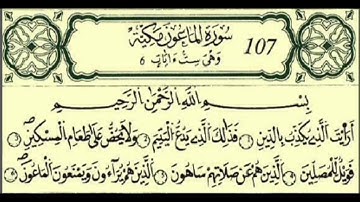 سُورَةُ المَاعُونَ مَكِّيَّةٌ
107
وَهِيَ سِتُّ ءَايَاتٍ 6
بِسْمِ اللَّهِ الرَّحْمَٰنِ الرَّحِيمِ
أَرَءَيْتَ الَّذِي يُكَذِّبُ بِالدِّينِ فَذَٰلِكَ الَّذِي يَدُعُّ الْيَتِيمَ وَلَا يَحُضُّ عَلَىٰ طَعَامِ الْمِسْكِينِ
فَوَيْلٌ لِّلْمُصَلِّينَ الَّذِينَ هُمْ عَن صَلَاتِهِمْ سَاهُونَ الَّذِينَ هُمْ يُرَآءُونَ وَيَمْنَعُونَ الْمَاعُونَ